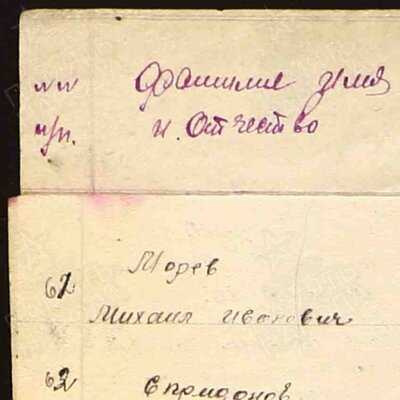 №№ Фамилие Имя
п/п. и Отчество
Морев
62
Михаил Иванович
63 Спиридонов